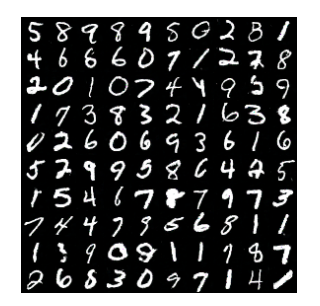 5 8 9 8 9 5 0 2 3 1
4 6 6 6 0 7 1 2 2 8
2 0 1 0 7 4 4 9 5 9
1 7 3 8 3 2 1 6 3 8
0 2 6 0 6 9 3 6 1 6
5 2 9 9 5 8 6 4 2 5
1 5 4 6 7 8 7 9 7 3
7 4 4 7 9 5 6 8 1 1
1 3 9 0 8 1 1 7 8 7
2 6 8 3 0 9 7 1 4 1